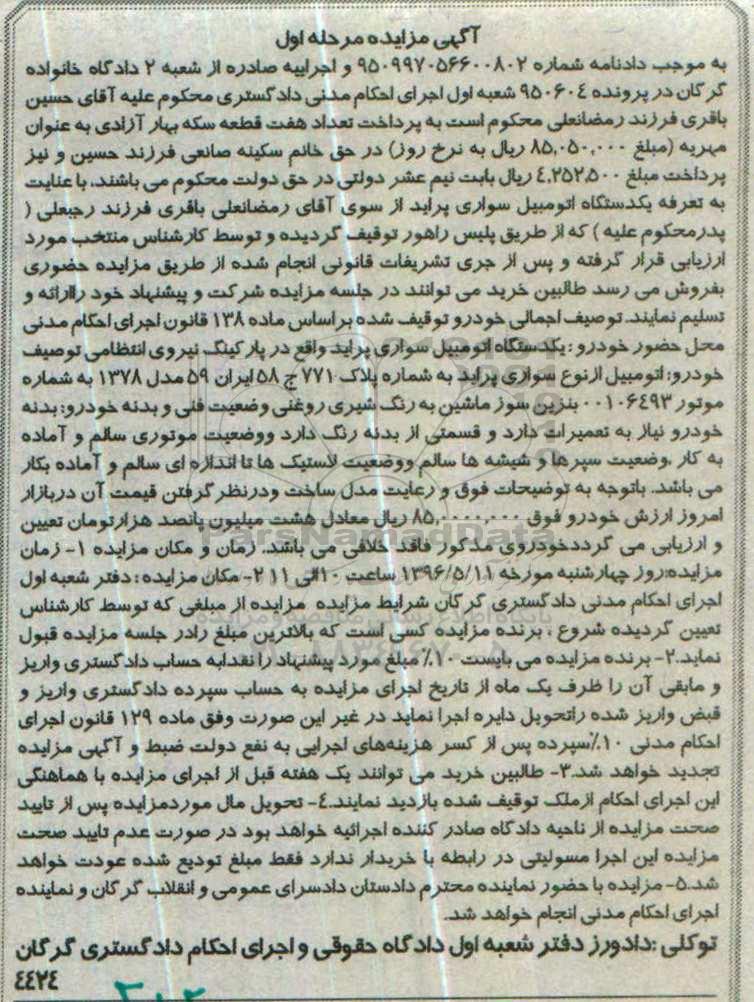 آگهی مزایده مرحله اول
به موجب دادنامه شماره ۹۵۰۹۹۷۰۵۶۶۰۰۸۰۲ و اجراییه صادره از شعبه ۲ دادگاه خانواده
گرگان در پرونده ۹۵۰۶۰٤ شعبه اول اجرای احکام مدنی دادگستری محکوم علیه آقای حسین
باقری فرزند رمضانعلی محکوم است به پرداخت تعداد هفت قطعه سکه بهار آزادی به عنوان
مهریه (مبلغ ۸۵,۰۵۰,۰۰۰ ریال به نرخ روز) در حق خانم سکینه صانعی فرزند حسین و نیز
پرداخت مبلغ ٤,۲۵۲,۵۰۰ ریال بابت نیم عشر دولتی در حق دولت محکوم می باشند. با عنایت
به تعرفه یکدستگاه اتومبیل سواری پراید از سوی آقای رمضانعلی باقری فرزند رجبعلی (
پدرمحکوم علیه ) که از طریق پلیس راهور توقیف گردیده و توسط کارشناس منتخب مورد
ارزیابی قرار گرفته و پس از جری تشریفات قانونی انجام شده از طریق مزایده حضوری
بفروش می رسد طالبین خرید می توانند در جلسه مزایده شرکت و پیشنهاد خود راارائه و
تسلیم نمایند. توصیف اجمالی خودرو توقیف شده براساس ماده ۱۳۸ قانون اجرای احکام مدنی
محل حضور خودرو : یکدستگاه اتومبیل سواری پراید واقع در پارکینگ نیروی انتظامی توصیف
خودرو: اتومبیل ازنوع سواری پراید به شماره پلاک ۷۷۱ ج ۵۸ ایران ۵۹ مدل ۱۳۷۸ به شماره
موتور ۰۰۱۰٦٤۹۳ بنزین سوز ماشین به رنگ شیری روغنی وضعیت فنی و بدنه خودرو: بدنه
خودرو نیاز به تعمیرات دارد و قسمتی از بدنه رنگ دارد ووضعیت موتوری سالم و آماده
به کار ،وضعیت سپرها و شیشه ها سالم ووضعیت لاستیک ها تا اندازه ای سالم و آماده بکار
می باشد. باتوجه به توضیحات فوق و رعایت مدل ساخت ودرنظر گرفتن قیمت آن دربازار
امروز ارزش خودرو فوق ۸۵,۰۰۰,۰۰۰ ریال معادل هشت میلیون پانصد هزارتومان تعیین
و ارزیابی می گرددخودروی مذکور فاقد خلافی می باشد. زمان و مکان مزایده ۱- زمان
مزایده:روز چهارشنبه مورخه ۱۳۹۶/۵/۱۱ ساعت ۱۰الی ۱۱ ۲- مکان مزایده : دفتر شعبه اول
اجرای احکام مدنی دادگستری گرگان شرایط مزایده مزایده از مبلغی که توسط کارشناس
تعیین گردیده شروع ، برنده مزایده کسی است که بالاترین مبلغ رادر جلسه مزایده قبول
نماید.۲- برنده مزایده می بایست ۱۰٪ مبلغ مورد پیشنهاد را نقدابه حساب دادگستری واریز
و مابقی آن را ظرف یک ماه از تاریخ اجرای مزایده به حساب سپرده دادگستری واریز و
قبض واریز شده راتحویل دایره اجرا نماید در غیر این صورت وفق ماده ۱۲۹ قانون اجرای
احکام مدنی ۱۰٪سپرده پس از کسر هزینه‌های اجرایی به نفع دولت ضبط و آگهی مزایده
تجدید خواهد شد.۳- طالبین خرید می توانند یک هفته قبل از اجرای مزایده با هماهنگی
این اجرای احکام ازملک توقیف شده بازدید نمایند.٤- تحویل مال موردمزایده پس از تایید
صحت مزایده از ناحیه دادگاه صادر کننده اجرائیه خواهد بود در صورت عدم تایید صحت
مزایده این اجرا مسولیتی در رابطه با خریدار ندارد فقط مبلغ تودیع شده عودت خواهد
شد.۵- مزایده با حضور نماینده محترم دادستان دادسرای عمومی و انقلاب گرگان و نماینده
اجرای احکام مدنی انجام خواهد شد.
توکلی :دادورز دفتر شعبه اول دادگاه حقوقی و اجرای احکام دادگستری گرگان
٤٤۲٤
ParsNamadData